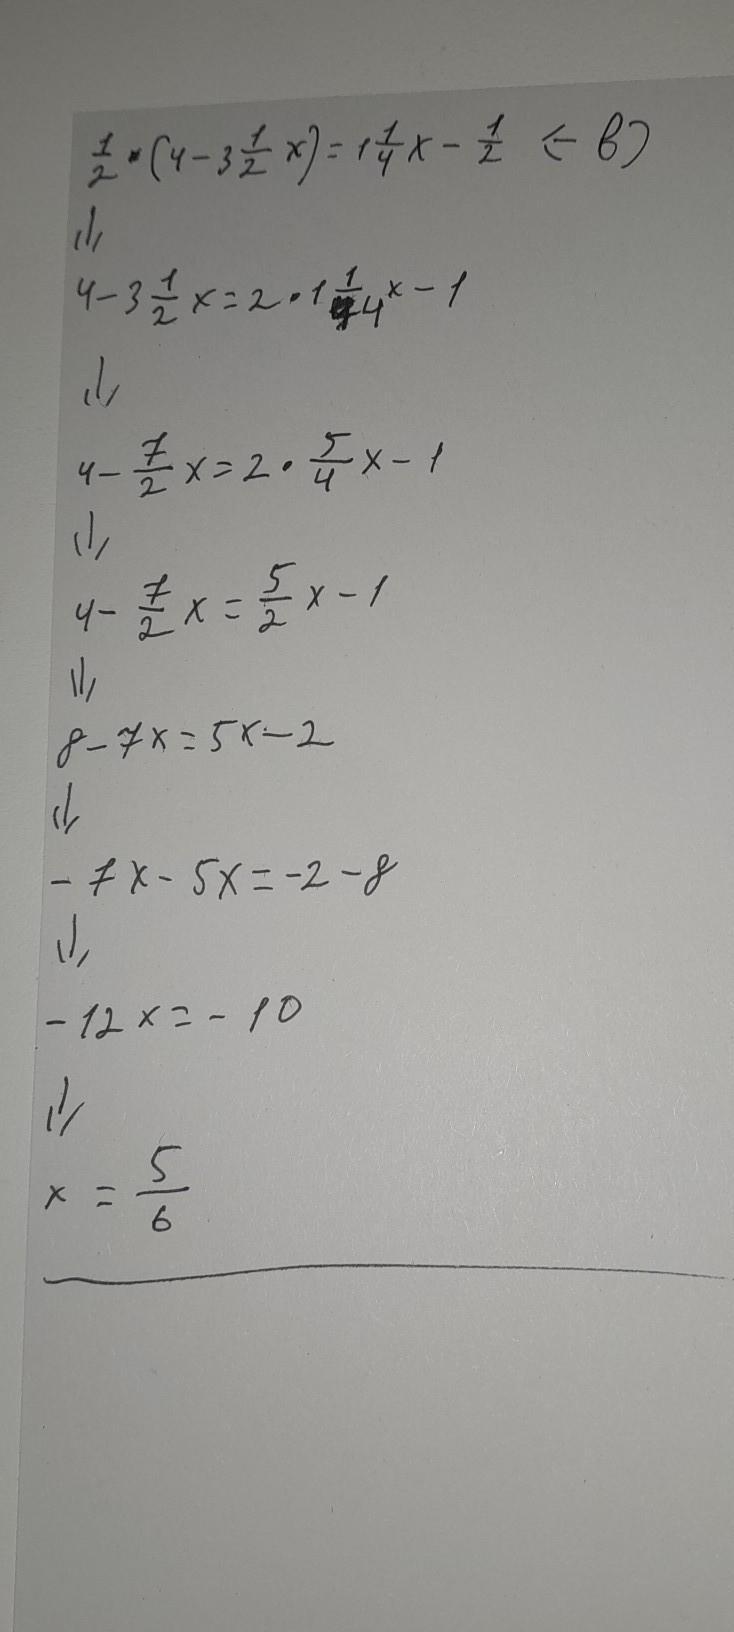 1/2 • (4 - 3 1/2 x) = 1 1/4 x - 1/2 ← в)
⇓
4 - 3 1/2 x = 2 • 1 1/4 x - 1
⇓
4 - 7/2 x = 2 • 5/4 x - 1
⇓
4 - 7/2 x = 5/2 x - 1
⇓
8 - 7x = 5x - 2
⇓
- 7x - 5x = -2 - 8
⇓
- 12x = - 10
⇓
x = 5/6